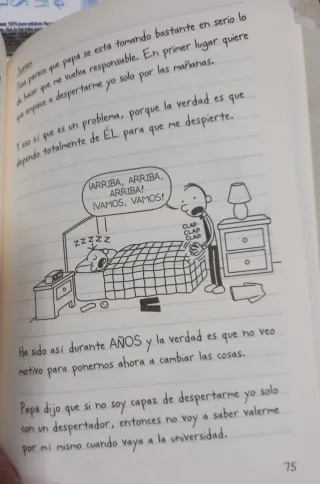 Jueves
Pues parece que papá se está tomando bastante en serio lo
de hacer que me vuelva responsable. En primer lugar quiere
que empiece a despertarme yo solo por las mañanas.
Y eso sí que es un problema, porque la verdad es que
dependo totalmente de ÉL para que me despierte.
¡ARRIBA, ARRIBA,
ARRIBA!
¡VAMOS, VAMOS!
ZZZZZ
CLAP
CLAP
CLAP
Ha sido así durante AÑOS y la verdad es que no veo
motivo para ponernos ahora a cambiar las cosas.
Papá dijo que si no soy capaz de despertarme yo solo
con un despertador, entonces no voy a saber valerme
por mí mismo cuando vaya a la universidad.
75